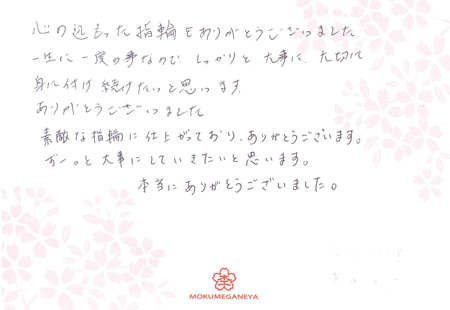 心の込もった指輪をありがとうございました
一生に一度の事なので しっかりと 大事に、大切に
身に付け続けたいと思います。
ありがとうございました
素敵な指輪に仕上がっており、ありがとうございます。
ずーっと大事にしていきたいと思います。
本当にありがとうございました。
MOKUMEGANEYA